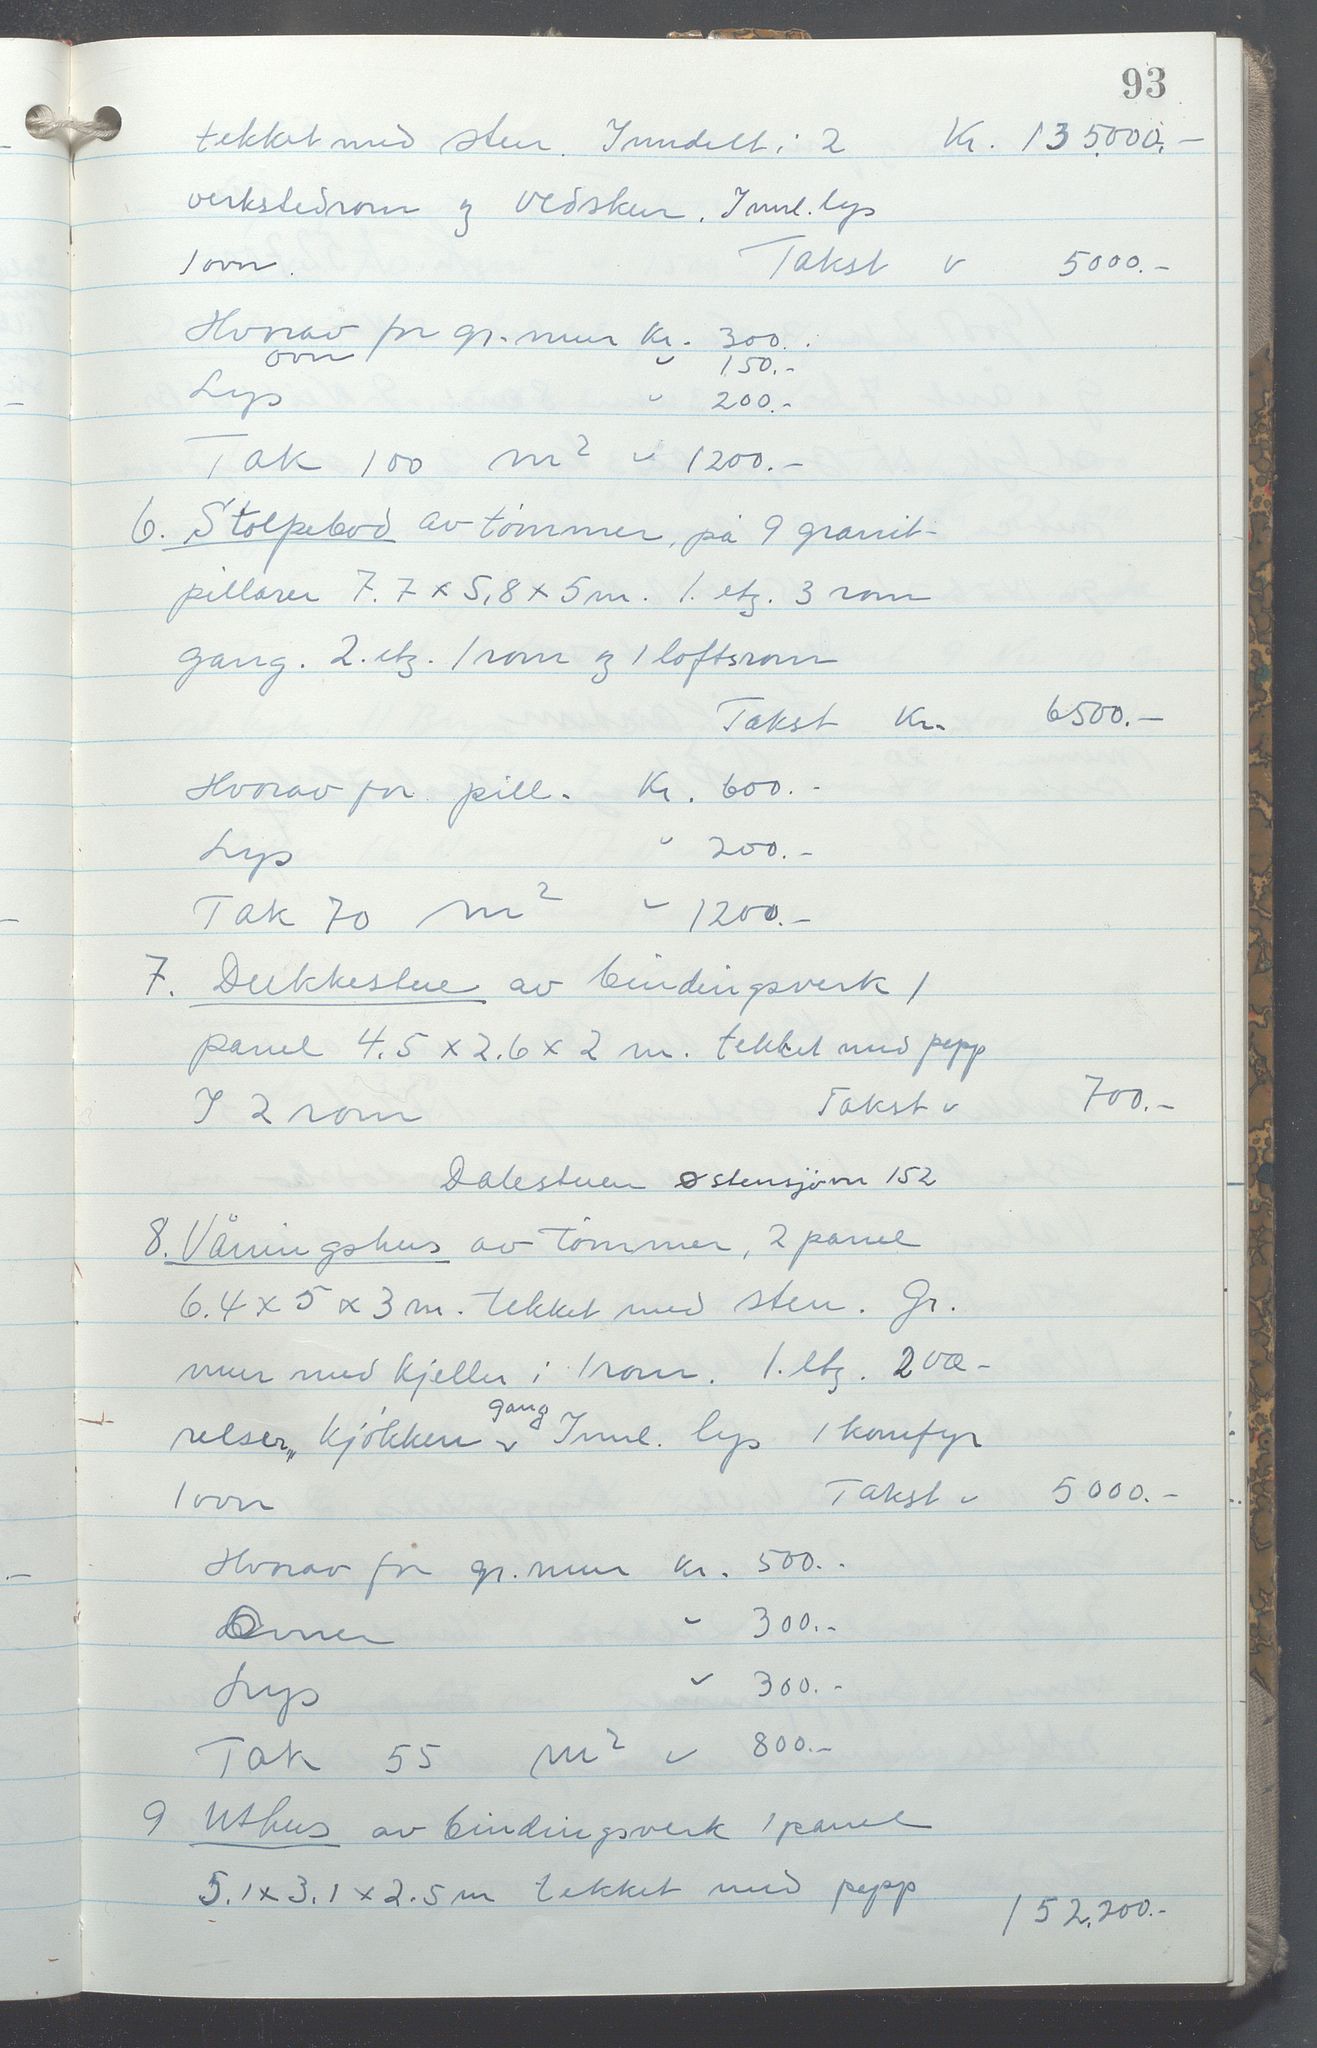 93
tekket med sten. Inndelt i 2 Kr. 135.000.-
verkstedrom og vedskur. Innl. lys
1 ovn. Takst " 5000.-
Hvorav for gr. mur Kr. 300.-
ovn " 150.-
Lys " 200.-
Tak 100 m² " 1200.-
6. Stolpebod av tömmer, på 9 granit-
pillarer 7.7 x 5,8 x 5 m. 1. etg. 3 rom
gang. 2. etg. 1 rom og 1 loftsrom
Takst Kr. 6500.-
Hvorav for pill. Kr. 600.-
Lys " 200.-
Tak 70 m² " 1200.-
7. Dukkestue av bindingsverk 1
panel 4.5 x 2.6 x 2 m. tekket med papp
I 2 rom Takst " 700.-
Dalestuen Østensjövn 152
8. Våningshus av tömmer, 2 panel
6.4 x 5 x 3 m. tekket med sten. Gr.
mur med kjeller i 1 rom. 1. etg. 2 væ-
relser, kjökken gang Innl. lys 1 komfyr
1 ovn Takst " 5000.-
Hvorav for gr. mur Kr. 500.-
Ovner " 300.-
Lys " 300.-
Tak 55 m² " 800.-
9 Uthus av bindingsverk 1 panel
5.1 x 3.1 x 2.5 m tekket med papp
152.200.-